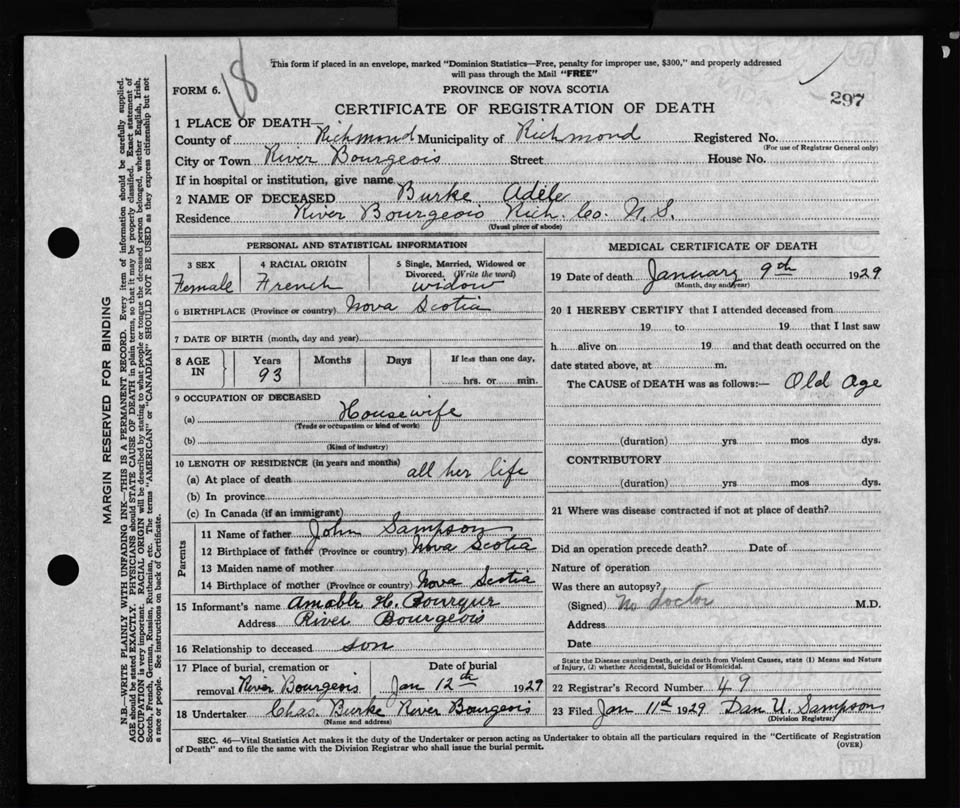 18
This form if placed in an envelope, marked "Dominion Statistics—Free, penalty for improper use, $300," and properly addressed
will pass through the Mail "FREE"
FORM 6.
PROVINCE OF NOVA SCOTIA
297
CERTIFICATE OF REGISTRATION OF DEATH
1 PLACE OF DEATH—
County of Richmond Municipality of Richmond Registered No.
(For use of Registrar General only)
City or Town River Bourgeois Street House No.
If in hospital or institution, give name
2 NAME OF DECEASED Burke Adèle
Residence River Bourgeois Rich. Co. N.S.
(Usual place of abode)
PERSONAL AND STATISTICAL INFORMATION
3 SEX 4 RACIAL ORIGIN 5 Single, Married, Widowed or
Divorced. (Write the word)
Female French widow
6 BIRTHPLACE (Province or country) Nova Scotia
7 DATE OF BIRTH (month, day and year)
8 AGE IN Years Months Days If less than one day,
93 hrs. or min.
9 OCCUPATION OF DECEASED
(a) Housewife
(Trade or occupation or kind of work)
(b)
(Kind of industry)
10 LENGTH OF RESIDENCE (in years and months)
(a) At place of death all her life
(b) In province
(c) In Canada (if an immigrant)
Parents
11 Name of father John Sampson
12 Birthplace of father (Province or country) Nova Scotia
13 Maiden name of mother
14 Birthplace of mother (Province or country) Nova Scotia
15 Informant's name Amable H. Bourque
Address River Bourgeois
16 Relationship to deceased son
17 Place of burial, cremation or Date of burial
removal River Bourgeois Jan 12th 1929
18 Undertaker Chas. Burke River Bourgeois
(Name and address)
MEDICAL CERTIFICATE OF DEATH
19 Date of death January 9th 1929
(Month, day and year)
20 I HEREBY CERTIFY that I attended deceased from
19 to 19 that I last saw
h alive on 19 and that death occurred on the
date stated above, at m.
The CAUSE of DEATH was as follows:— Old Age
(duration) yrs mos dys.
CONTRIBUTORY
(duration) yrs. mos. dys.
21 Where was disease contracted if not at place of death?
Did an operation precede death? Date of
Nature of operation
Was there an autopsy?
(Signed) no doctor M.D.
Address
Date
State the Disease causing Death, or in death from Violent Causes, state (1) Means and Nature
of Injury, (2) whether Accidental, Suicidal or Homicidal.
22 Registrar's Record Number 49
23 Filed Jan 11th 1929 Dan U. Sampson
(Division Registrar)
SEC. 46—Vital Statistics Act makes it the duty of the Undertaker or person acting as Undertaker to obtain all the particulars required in the "Certificate of Registration
of Death" and to file the same with the Division Registrar who shall issue the burial permit.
(OVER)
MARGIN RESERVED FOR BINDING
N.B.—WRITE PLAINLY WITH UNFADING INK—THIS IS A PERMANENT RECORD. Every item of information should be carefully supplied.
AGE should be stated EXACTLY. PHYSICIANS should STATE CAUSE OF DEATH in plain terms, so that it may be properly classified. Exact statement of
OCCUPATION is very important. RACIAL ORIGIN will be described by stating to what people or tongue the deceased person belonged, whether English, Irish,
Scotch, French, German, Russian, Ruthenian, etc. The terms "AMERICAN" or "CANADIAN" SHOULD NOT BE USED as they express citizenship but not
a race or people. See instructions on back of Certificate.